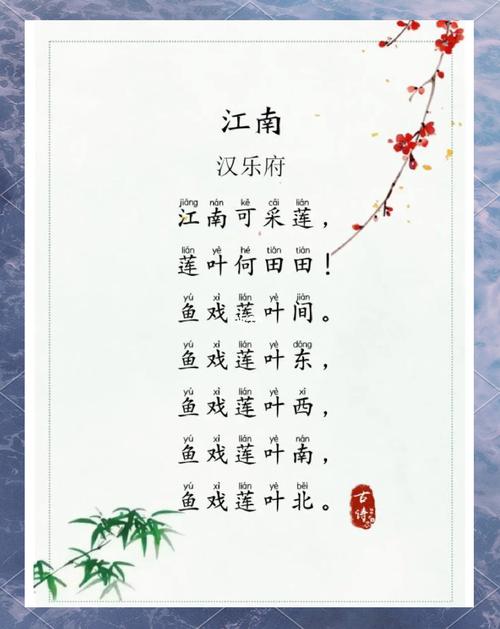 江南
汉乐府
jiāng nán kě cǎi lián
江南可采莲，
lián yè hé tián tián
莲叶何田田！
yú xì lián yè jiān
鱼戏莲叶间。
yú xì lián yè dōng
鱼戏莲叶东，
yú xì lián yè xī
鱼戏莲叶西，
yú xì lián yè nán
鱼戏莲叶南，
yú xì lián yè běi
鱼戏莲叶北。
古诗